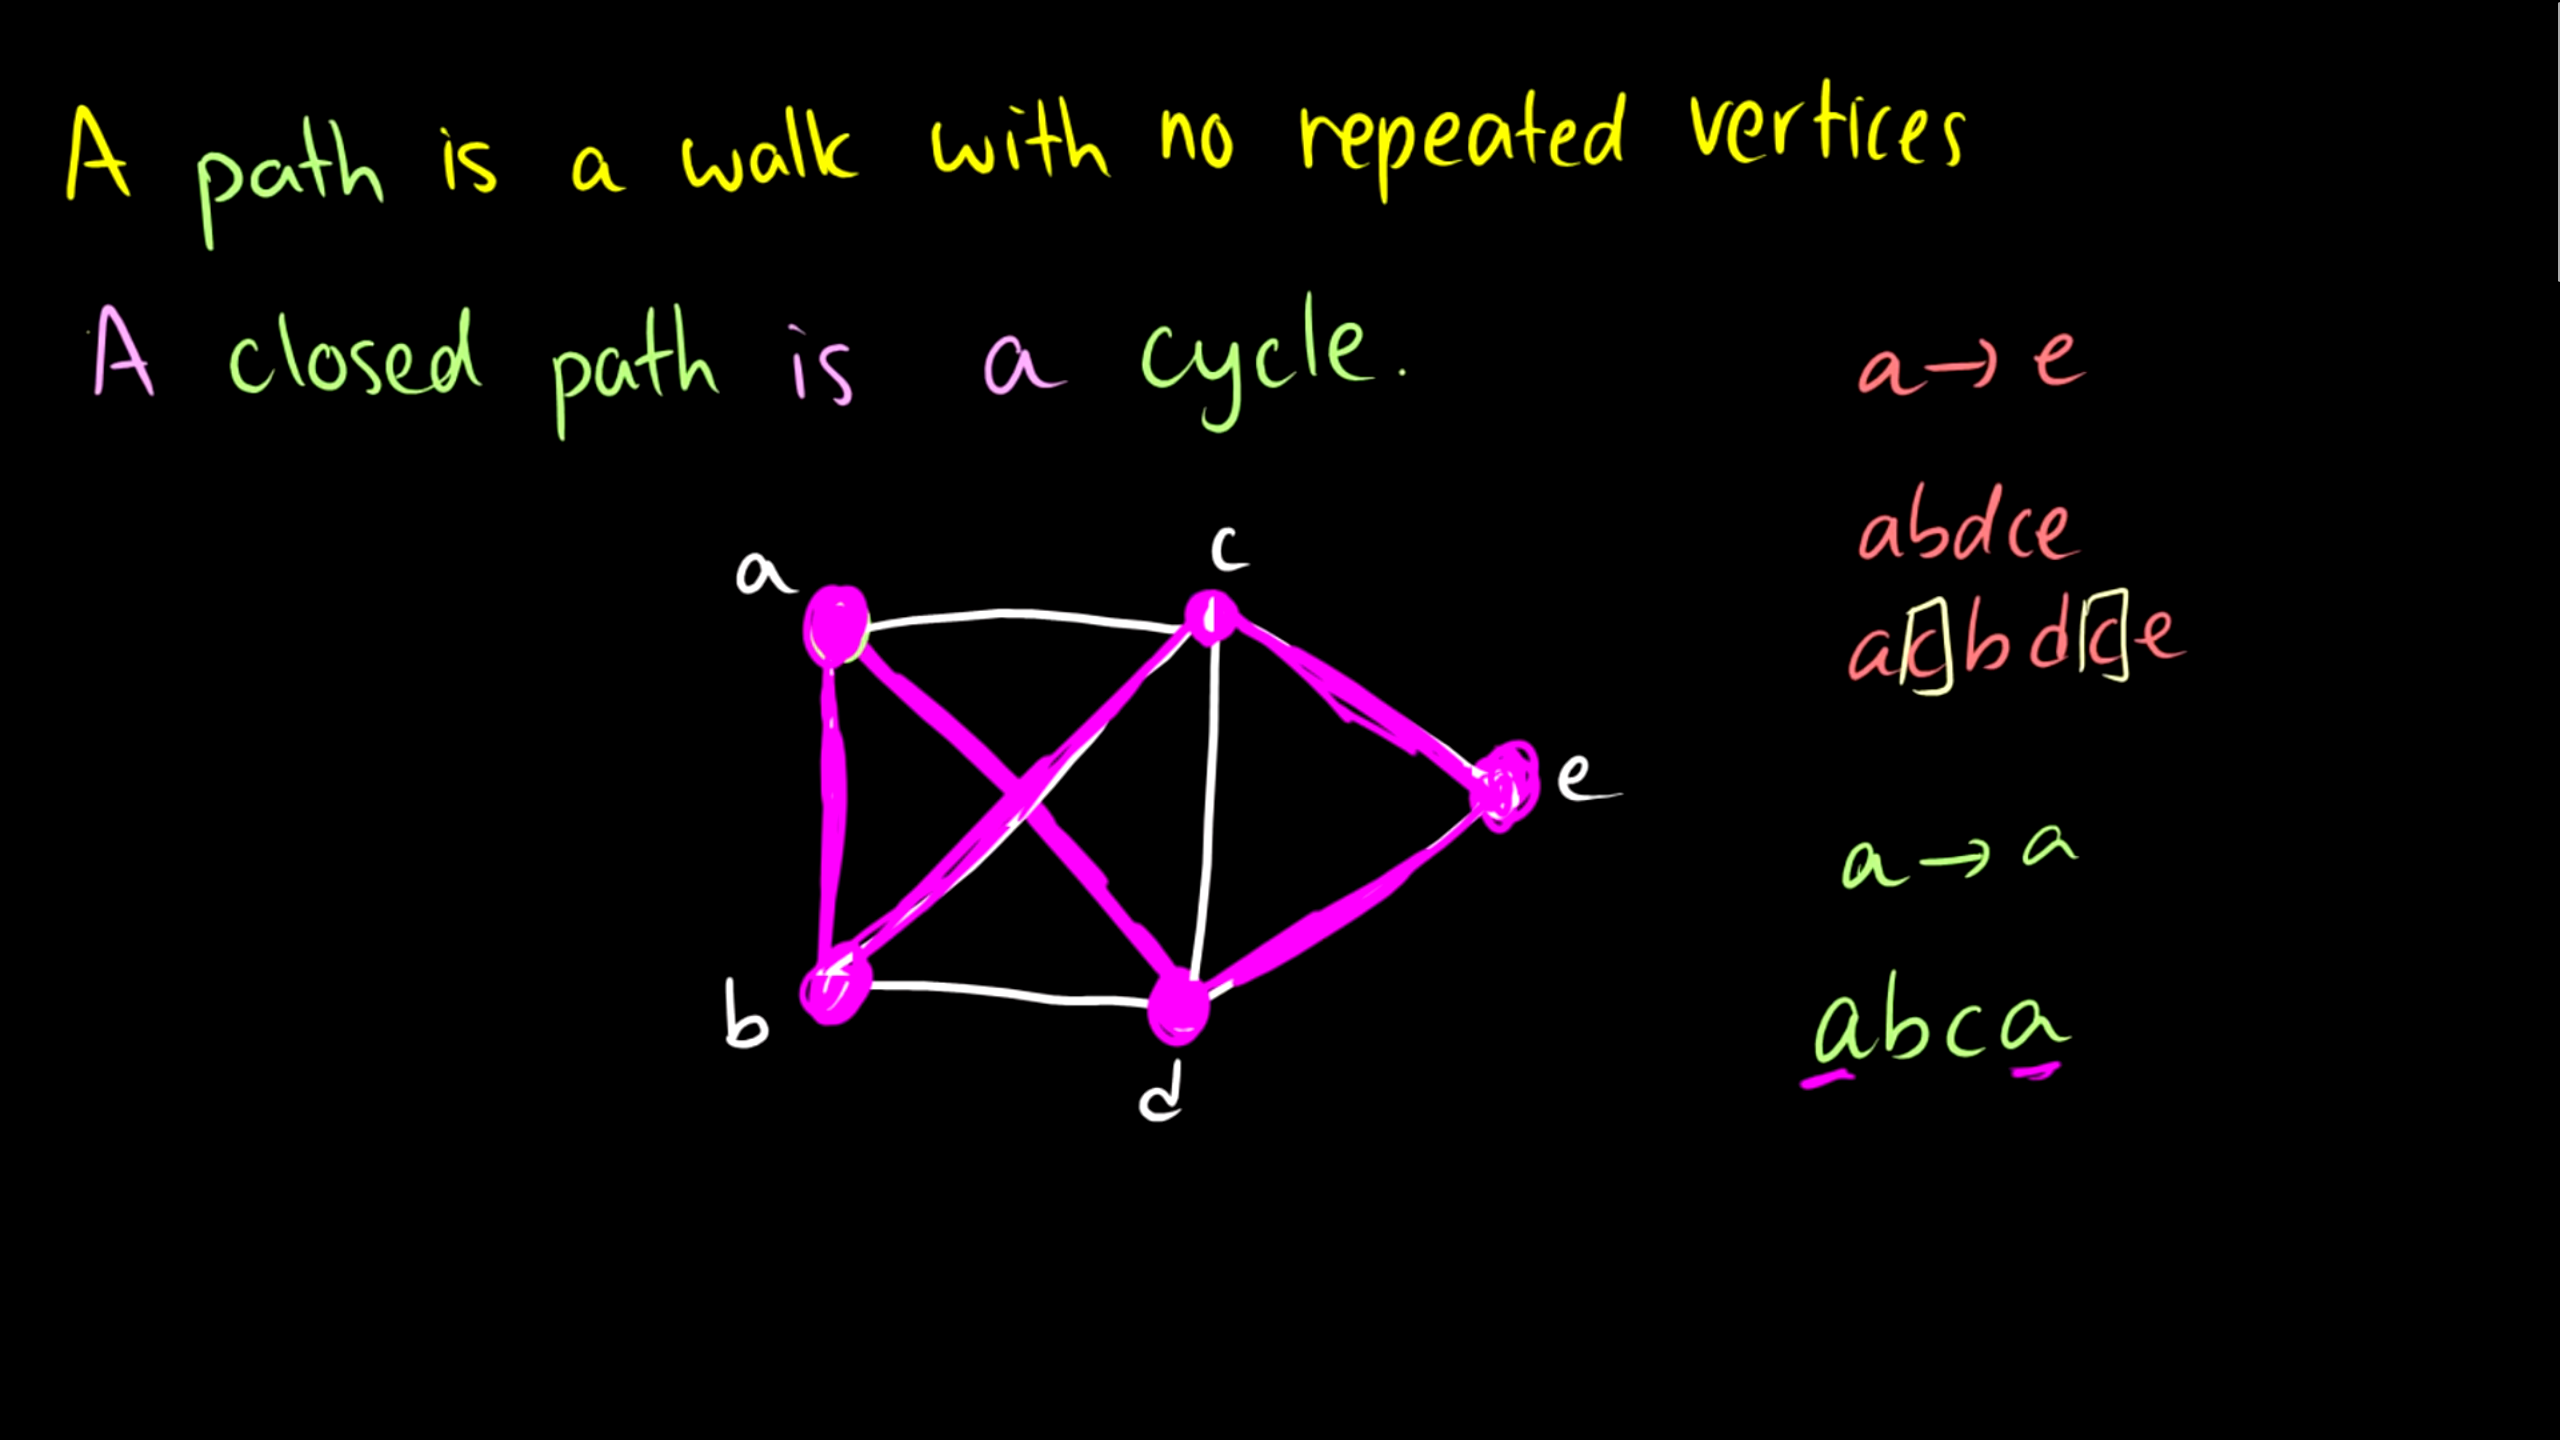 A path is a walk with no repeated vertices
A closed path is a cycle.
a → e
abdce
acbdce
a → a
abca
a
c
e
b
d